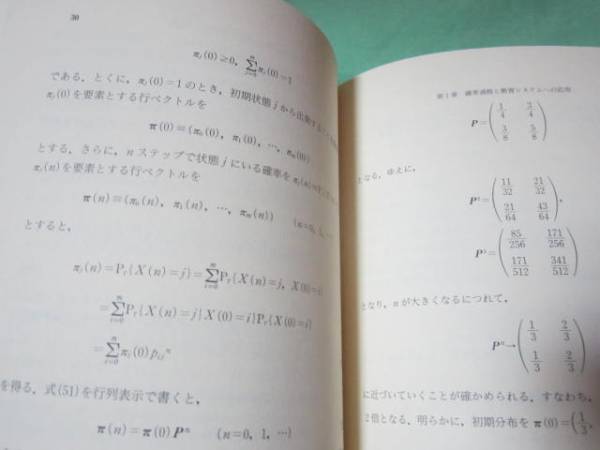 30
π_j(0)≥0, Σ_{j=0}^{m} π_j(0)=1
である．とくに，π_j(0)=1 のとき，初期状態 j から出発する
π_j(0)を要素とする行ベクトルを
π(0)≡(π_0(0), π_1(0), …, π_m(0))
とする．さらに，n ステップで状態 j にいる確率を π_j(n)
π_j(n)を要素とする行ベクトルを
π(n)≡(π_0(n), π_1(n), …, π_m(n)) (n=0, 1, …
とすると，
π_j(n)=P_r{X(n)=j}=Σ_{i=0}^{m}P_r{X(n)=j, X(0)=
=Σ_{i=0}^{m}P_r{X(n)=j|X(0)=i}P_r{X(0)=i}
=Σ_{i=0}^{m}π_i(0)p_{ij}^n
を得る．式(51)を行列表示で書くと，
π(n)=π(0)P^n (n=0, 1, …)
P=(1/4 3/4
3/8 5/8)
となる．ゆえに，
P^2=(11/32 21/32
21/64 43/64),
P^3=(85/256 171/256
171/512 341/512)
となり，n が大きくなるにつれて，
P^n→(1/3 2/3
1/3 2/3)
に近づいていくことが確かめられる．すなわち，
2倍となる．明らかに，初期分布を π(0)=(1/3,